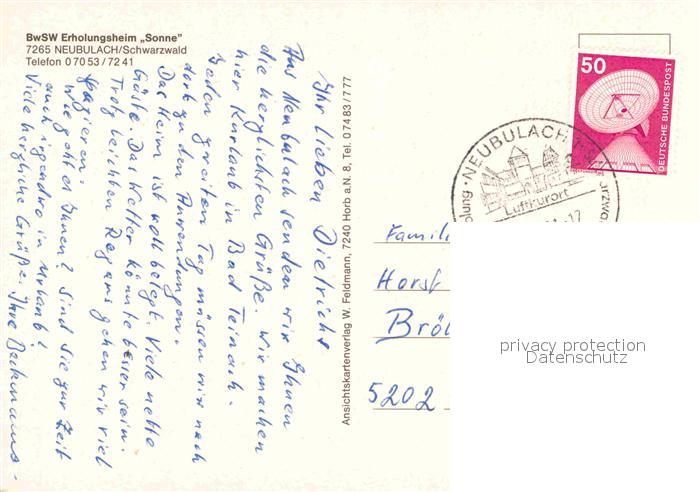 BwSW Erholungsheim „Sonne"
7265 NEUBULACH/Schwarzwald
Telefon 0 70 53 / 72 41
Ihr lieben Dietrichs
Aus Neubulach senden wir Ihnen
die herzlichsten Grüße. Wir machen
hier Kurlaub in Bad Teinach.
Jeden zweiten Tag müssen wir nach
dort zu den Anwendungen.
Das Heim ist voll belegt. Viele nette
Gäste. Das Wetter könnte besser sein.
Trotz leichten Regens gehen wir viel
spazieren.
Wie geht es Ihnen? Sind Sie zur Zeit
auch irgendwo in Urlaub?
Viele herzliche Grüße. Ihre Beckmanns.
Ansichtskartenverlag W. Feldmann, 7240 Horb a.N. 8, Tel. 0 74 83 / 7 77
50
DEUTSCHE BUNDESPOST
NEUBULACH
Luftkurort
Famili
Horst
Bröl
5202
privacy protection
Datenschutz